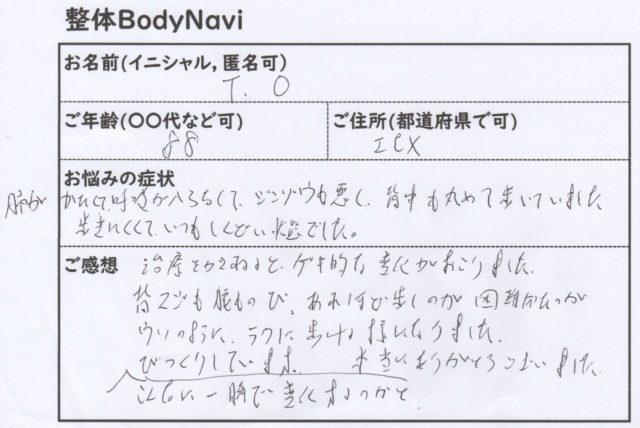 整体BodyNavi
お名前(イニシャル,匿名可)
T. O
ご年齢(〇〇代など可) ご住所(都道府県で可)
88
お悩みの症状
肺がかたくて呼吸が もしんどい状態でした。
歩きにくくていつもしんどい状態でした。
ご感想 治療をかさねると、ゲキ的な変化がおこりました。
背スジも腰ものび、あれほど歩くのが困難だったが
ウソのように、ラクに歩ける様になりました。
びっくりしています。 本当にありがとうございました。
こんなに一瞬で変化するのかと